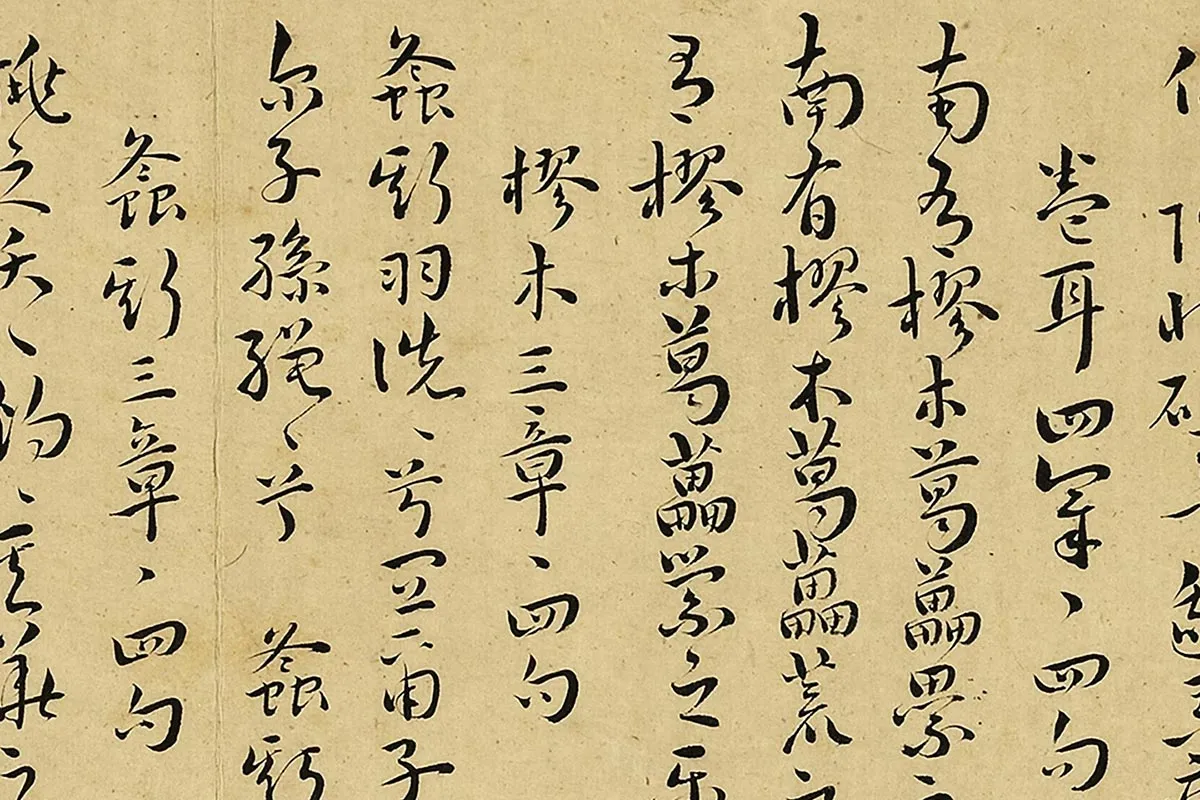 卷耳四章、四句
南有樛木葛藟纍
南有樛木葛藟荒之
有樛木葛藟縈之樂
樛木三章、四句
螽斯羽詵、兮宜爾子
尔子孫繩、兮 螽斯
螽斯三章、四句
桃之夭、灼、其華